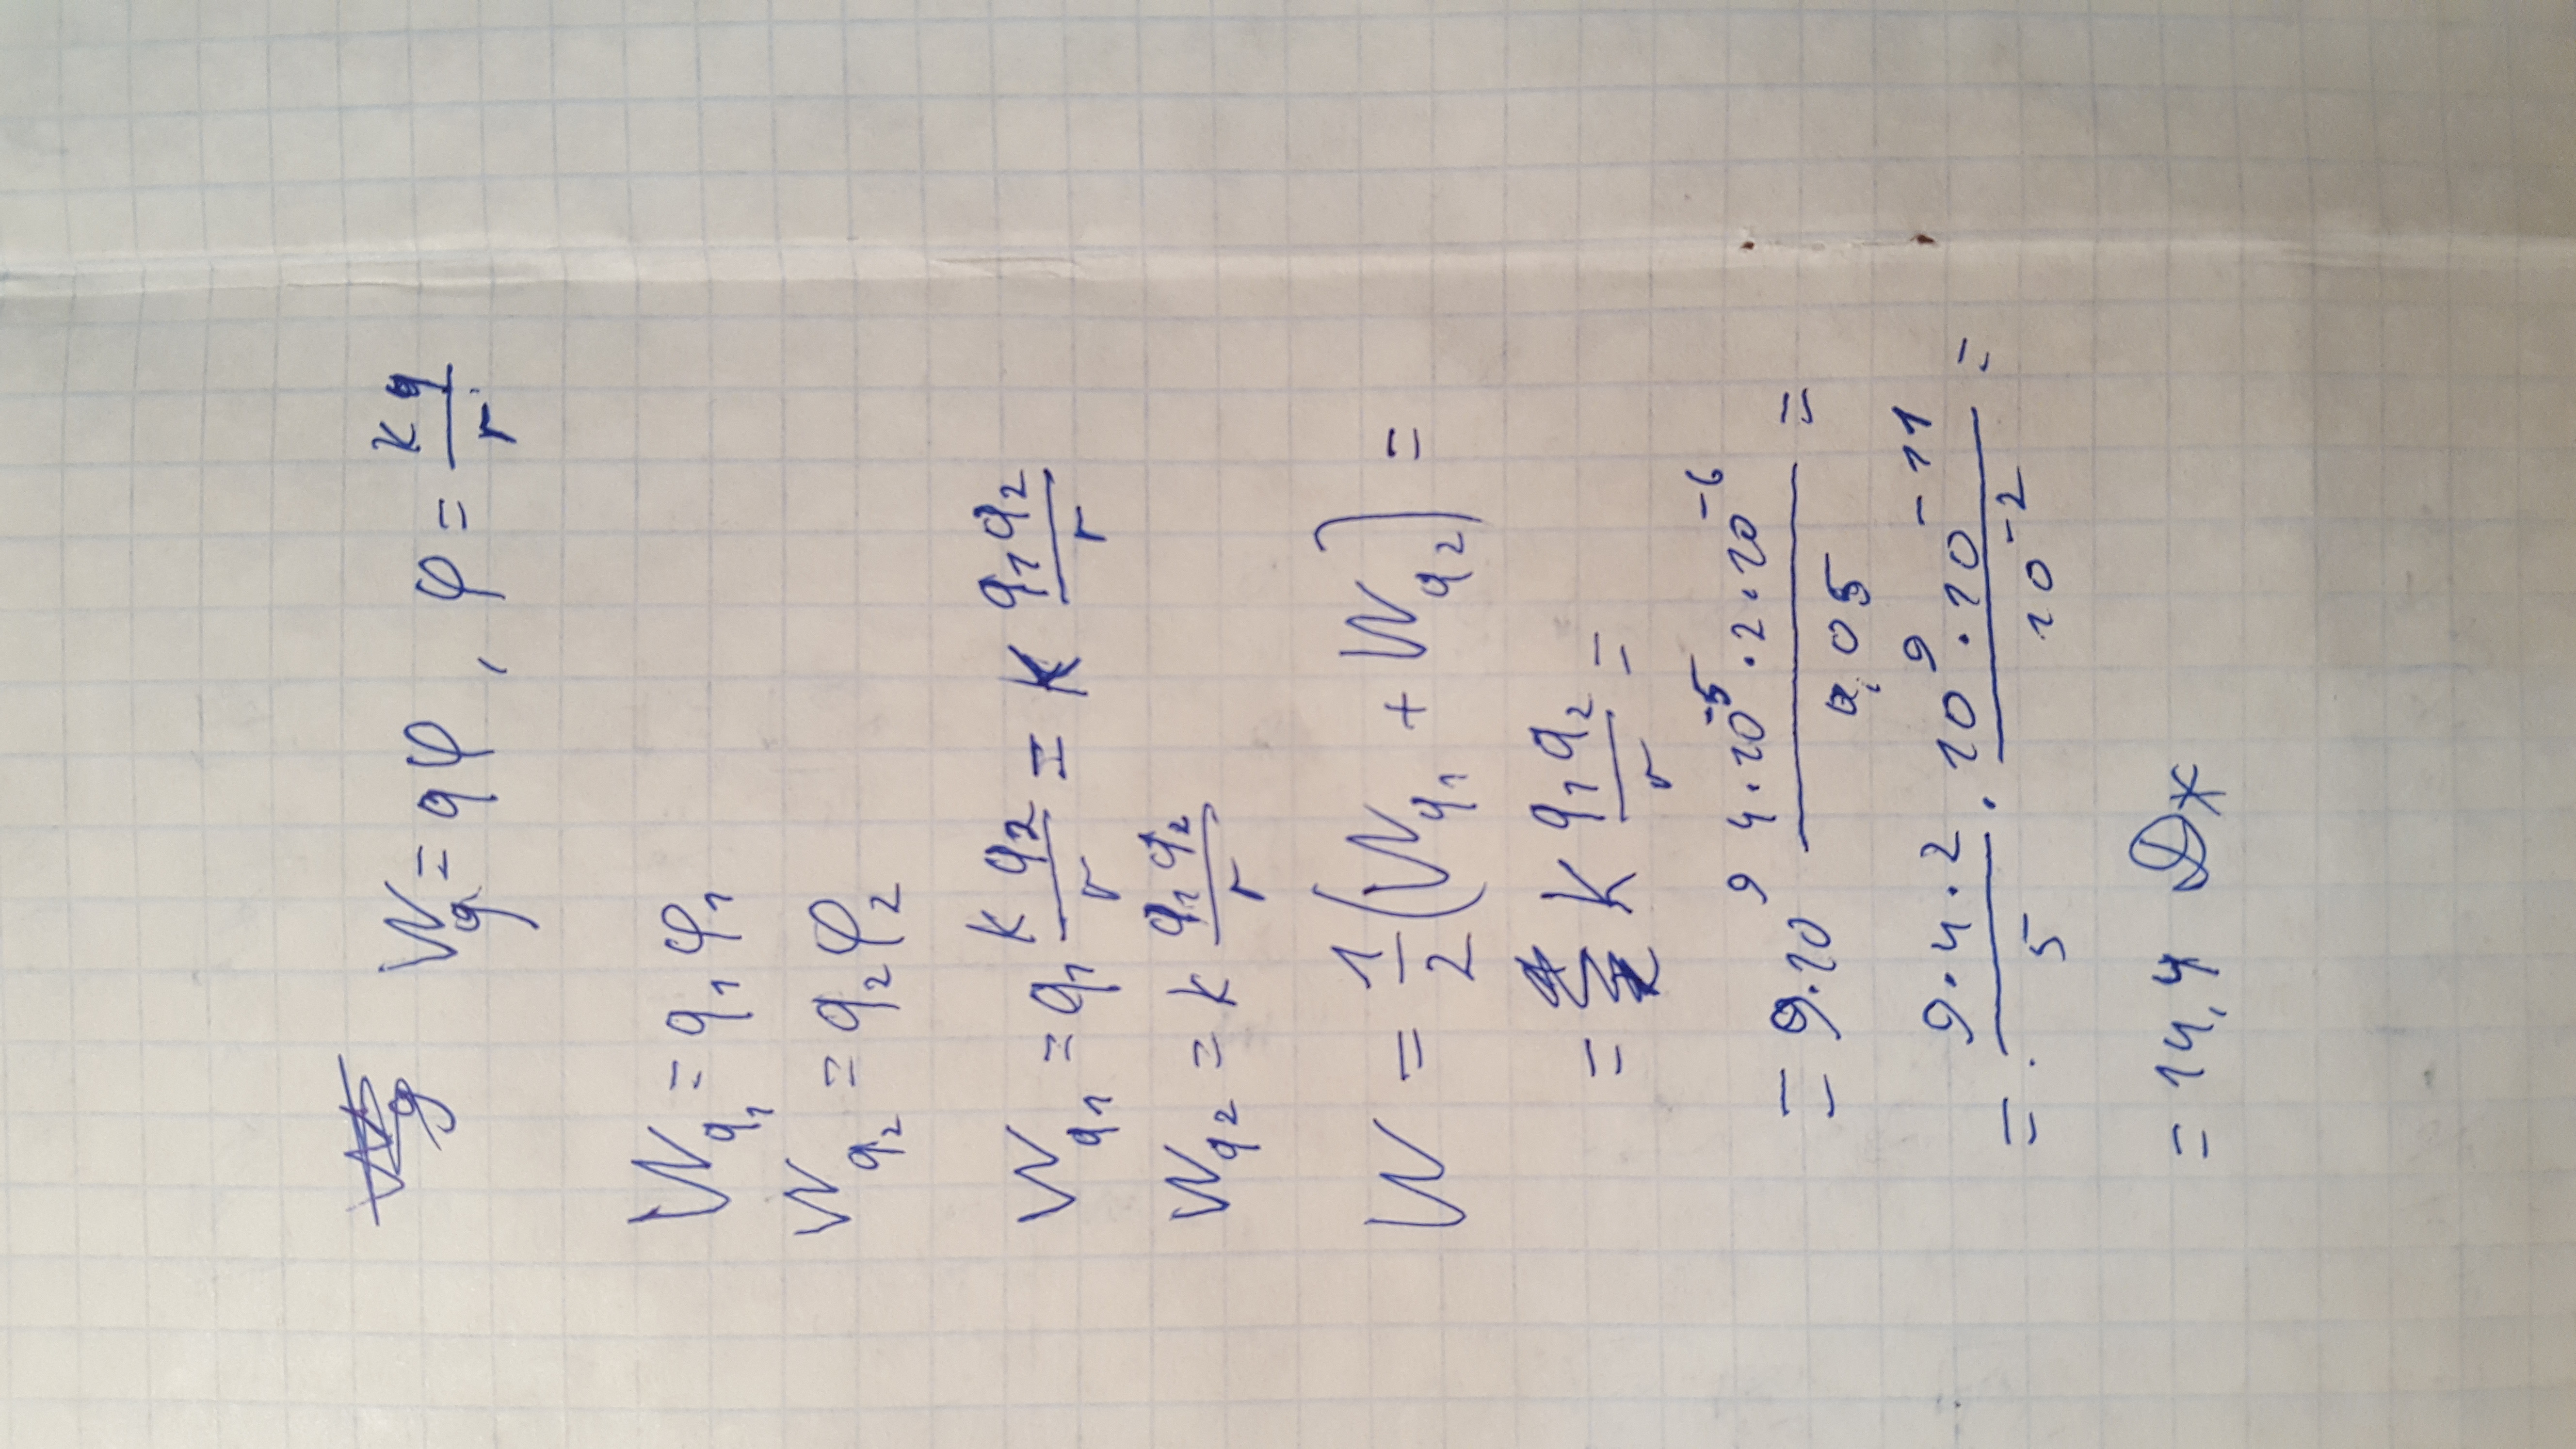 W_q = qφ , φ = kq/r
W_q1 = q1φ1
W_q2 = q2φ2
W_q1 = q1 k q2/r = k q1q2/r
W_q2 = k q1q2/r
W = 1/2 (W_q1 + W_q2) =
= k q1q2/r =
= 9·10^9 4·10^-5·2·10^-6/0,05 =
= 9·4·2/5 · 10^9·10^-11/10^-2 =
= 14,4 Дж